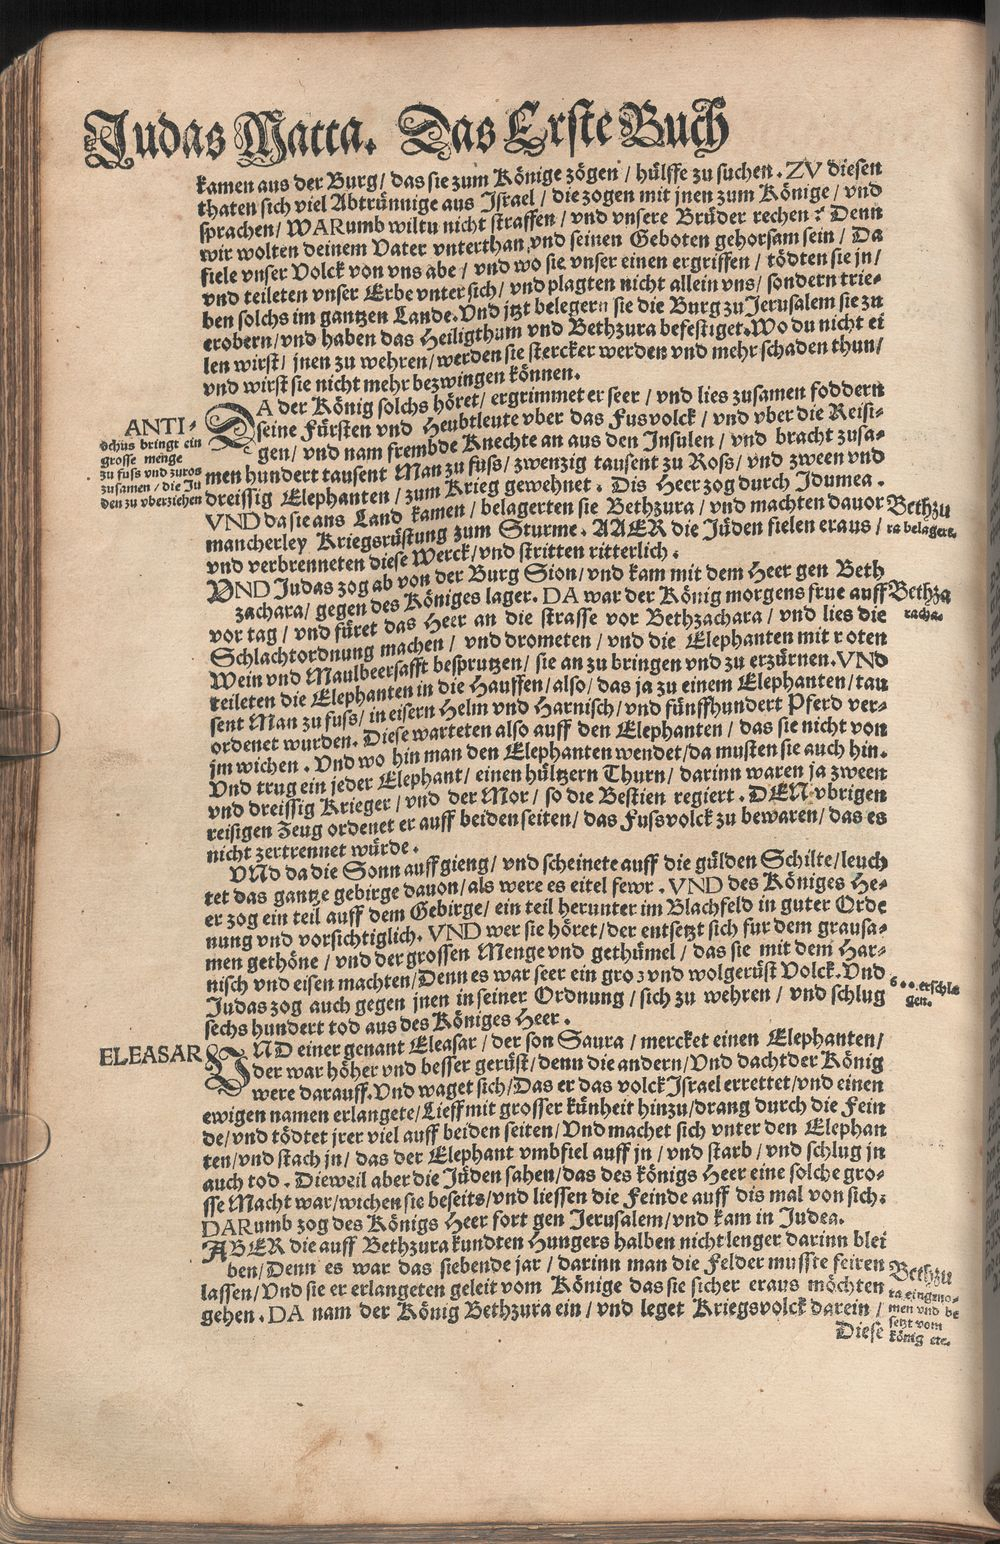 Judas Matta. Das Erste Buch
kamen aus der Burg / das sie zum Könige zögen / hülffe zu suchen. ZV diesen
thaten sich viel Abtrünnige aus Jsrael / die zogen mit jnen zum Könige / vnd
sprachen / WARumb wiltu nicht straffen / vnd vnsere Brüder rechen? Denn
wir wolten deinem Vater vnterthan vnd seinen Geboten gehorsam sein / Da
fiele vnser Volck von vns abe / vnd wo sie vnser einen ergriffen / tödten sie jn /
vnd teileten vnser Erbe vnter sich / vnd plagten nicht allein vns / sondern trie-
ben solchs im gantzen Lande. Vnd jtzt belegern sie die Burg zu Jerusalem sie zu
erobern / vnd haben das Heiligthum vnd Bethzura befestiget. Wo du nicht ei
len wirst / jnen zu wehren / werden sie stercker werden vnd mehr schaden thun /
vnd wirst sie nicht mehr bezwingen können.
DA der König solchs höret / ergrimmet er seer / vnd lies zusamen foddern
seine Fürsten vnd Heubtleute vber das Fusvolck / vnd vber die Reisi-
gen / vnd nam frembde Knechte an aus den Insulen / vnd bracht zusa-
men hundert tausent Man zu fuss / zwenzig tausent zu Ross / vnd zween vnd
dreissig Elephanten / zum Krieg gewehnet. Dis Heer zog durch Idumea.
VND da sie ans Land kamen / belagerten sie Bethzura / vnd machten dauor
mancherley Kriegsrüstung zum Sturme. AAER die Jüden fielen eraus /
vnd verbrenneten diese Werck / vnd stritten ritterlich.
ANTI-
ochus bringt ein
grosse menge
zu fuss vnd zuros
zusamen / die Jü
den zu vberziehen
Bethzu
ra belagert.
VND Judas zog ab von der Burg Sion / vnd kam mit dem Heer gen Beth
zachara / gegen des Königes lager. DA war der König morgens frue auff
vor tag / vnd füret das Heer an die strasse vor Bethzachara / vnd lies die
Schlachtordnung machen / vnd drometen / vnd die Elephanten mit roten
Wein vnd Maulbeersafft besprutzen / sie an zu bringen vnd zu erzürnen. VNd
teileten die Elephanten in die Hauffen / also / das ja zu einem Elephanten / tau
sent Man zu fuss / in eisern Helm vnd Harnisch / vnd fünffhundert Pferd ver-
ordenet wurden. Diese warteten also auff den Elephanten / das sie nicht von
jm wichen. Vnd wo hin man den Elephanten wendet / da musten sie auch hin.
Vnd trug ein jeder Elephant / einen hültzern Thurn / darinn waren ja zween
vnd dreissig Krieger / vnd der Mor / so die Bestien regiert. DEN vbrigen
reisigen Zeug ordenet er auff beiden seiten / das Fussvolck zu bewaren / das es
nicht zertrennet würde.
Bethza
racha.
VNd da die Sonn auff gieng / vnd scheinete auff die gülden Schilte / leuch
tet das gantze gebirge dauon / als were es eitel fewr. VND des Königes He-
er zog ein teil auff dem Gebirge / ein teil herunter im Blachfeld in guter Orde
nung vnd vorsichtiglich. VND wer sie höret / der entsetzt sich fur dem grausa-
men gethöne / vnd der grossen Menge vnd gethümel / das sie mit dem Har-
nisch vnd eisen machten / Denn es war seer ein gros vnd wolgerüst Volck. Vnd
Judas zog auch gegen jnen in seiner Ordnung / sich zu wehren / vnd schlug
sechs hundert tod aus des Königes Heer.
6.. erschla
gen.
ELEASAR
VND einer genant Eleasar / der son Saura / mercket einen Elephanten /
der war höher vnd besser gerüst / denn die andern / Vnd dacht der König
were darauff. Vnd waget sich / Das er das volck Jsrael errettet / vnd einen
ewigen namen erlangete / Lieff mit grosser künheit hinzu / drang durch die Fein
de / vnd tödtet jrer viel auff beiden seiten / Vnd machet sich vnter den Elephan
ten / vnd stach jn / das der Elephant vmbfiel auff jn / vnd starb / vnd schlug jn
auch tod. Dieweil aber die Jüden sahen / das des königs Heer eine solche gro-
sse Macht war / wichen sie beseits / vnd liessen die Feinde auff dis mal von sich:
DARumb zog des Königs Heer fort gen Jerusalem / vnd kam in Judea.
ABER die auff Bethzura kundten Hungers halben nicht lenger darinn blei
ben / Denn es war das siebende jar / darinn man die Felder musste feiren
lassen / Vnd sie er erlangeten geleit vom Könige das sie sicher eraus möchten
gehen. DA nam der König Bethzura ein / vnd leget Kriegsvolck darein /
Diese
Bethzu
ra eingeno-
men vnd be
setzt vom
könig etc.